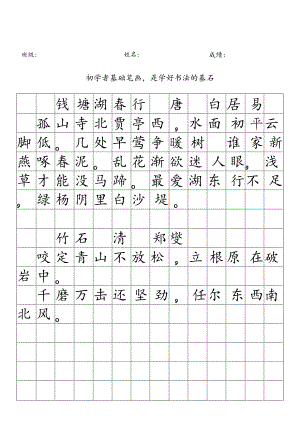 班级： 姓名： 成绩：
初学者基础笔画，是学好书法的基石
钱塘湖春行 唐 白居易
孤山寺北贾亭西，水面 初平云
脚低。几处早莺争暖树 谁家新
燕啄春泥。乱花渐欲迷人眼，浅
草才能没马蹄。最爱湖东行不足
，绿杨阴里白沙堤。
竹石 清 郑燮
咬定青山不放松，立根原在破
岩中。
千磨万击还坚劲，任尔东西南
北风。